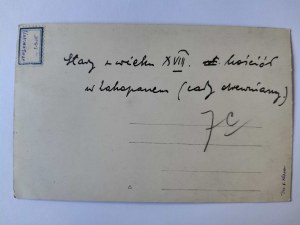 Stary z wieku XVIII kościół
w Zakopanem (cały drewniany)
7c